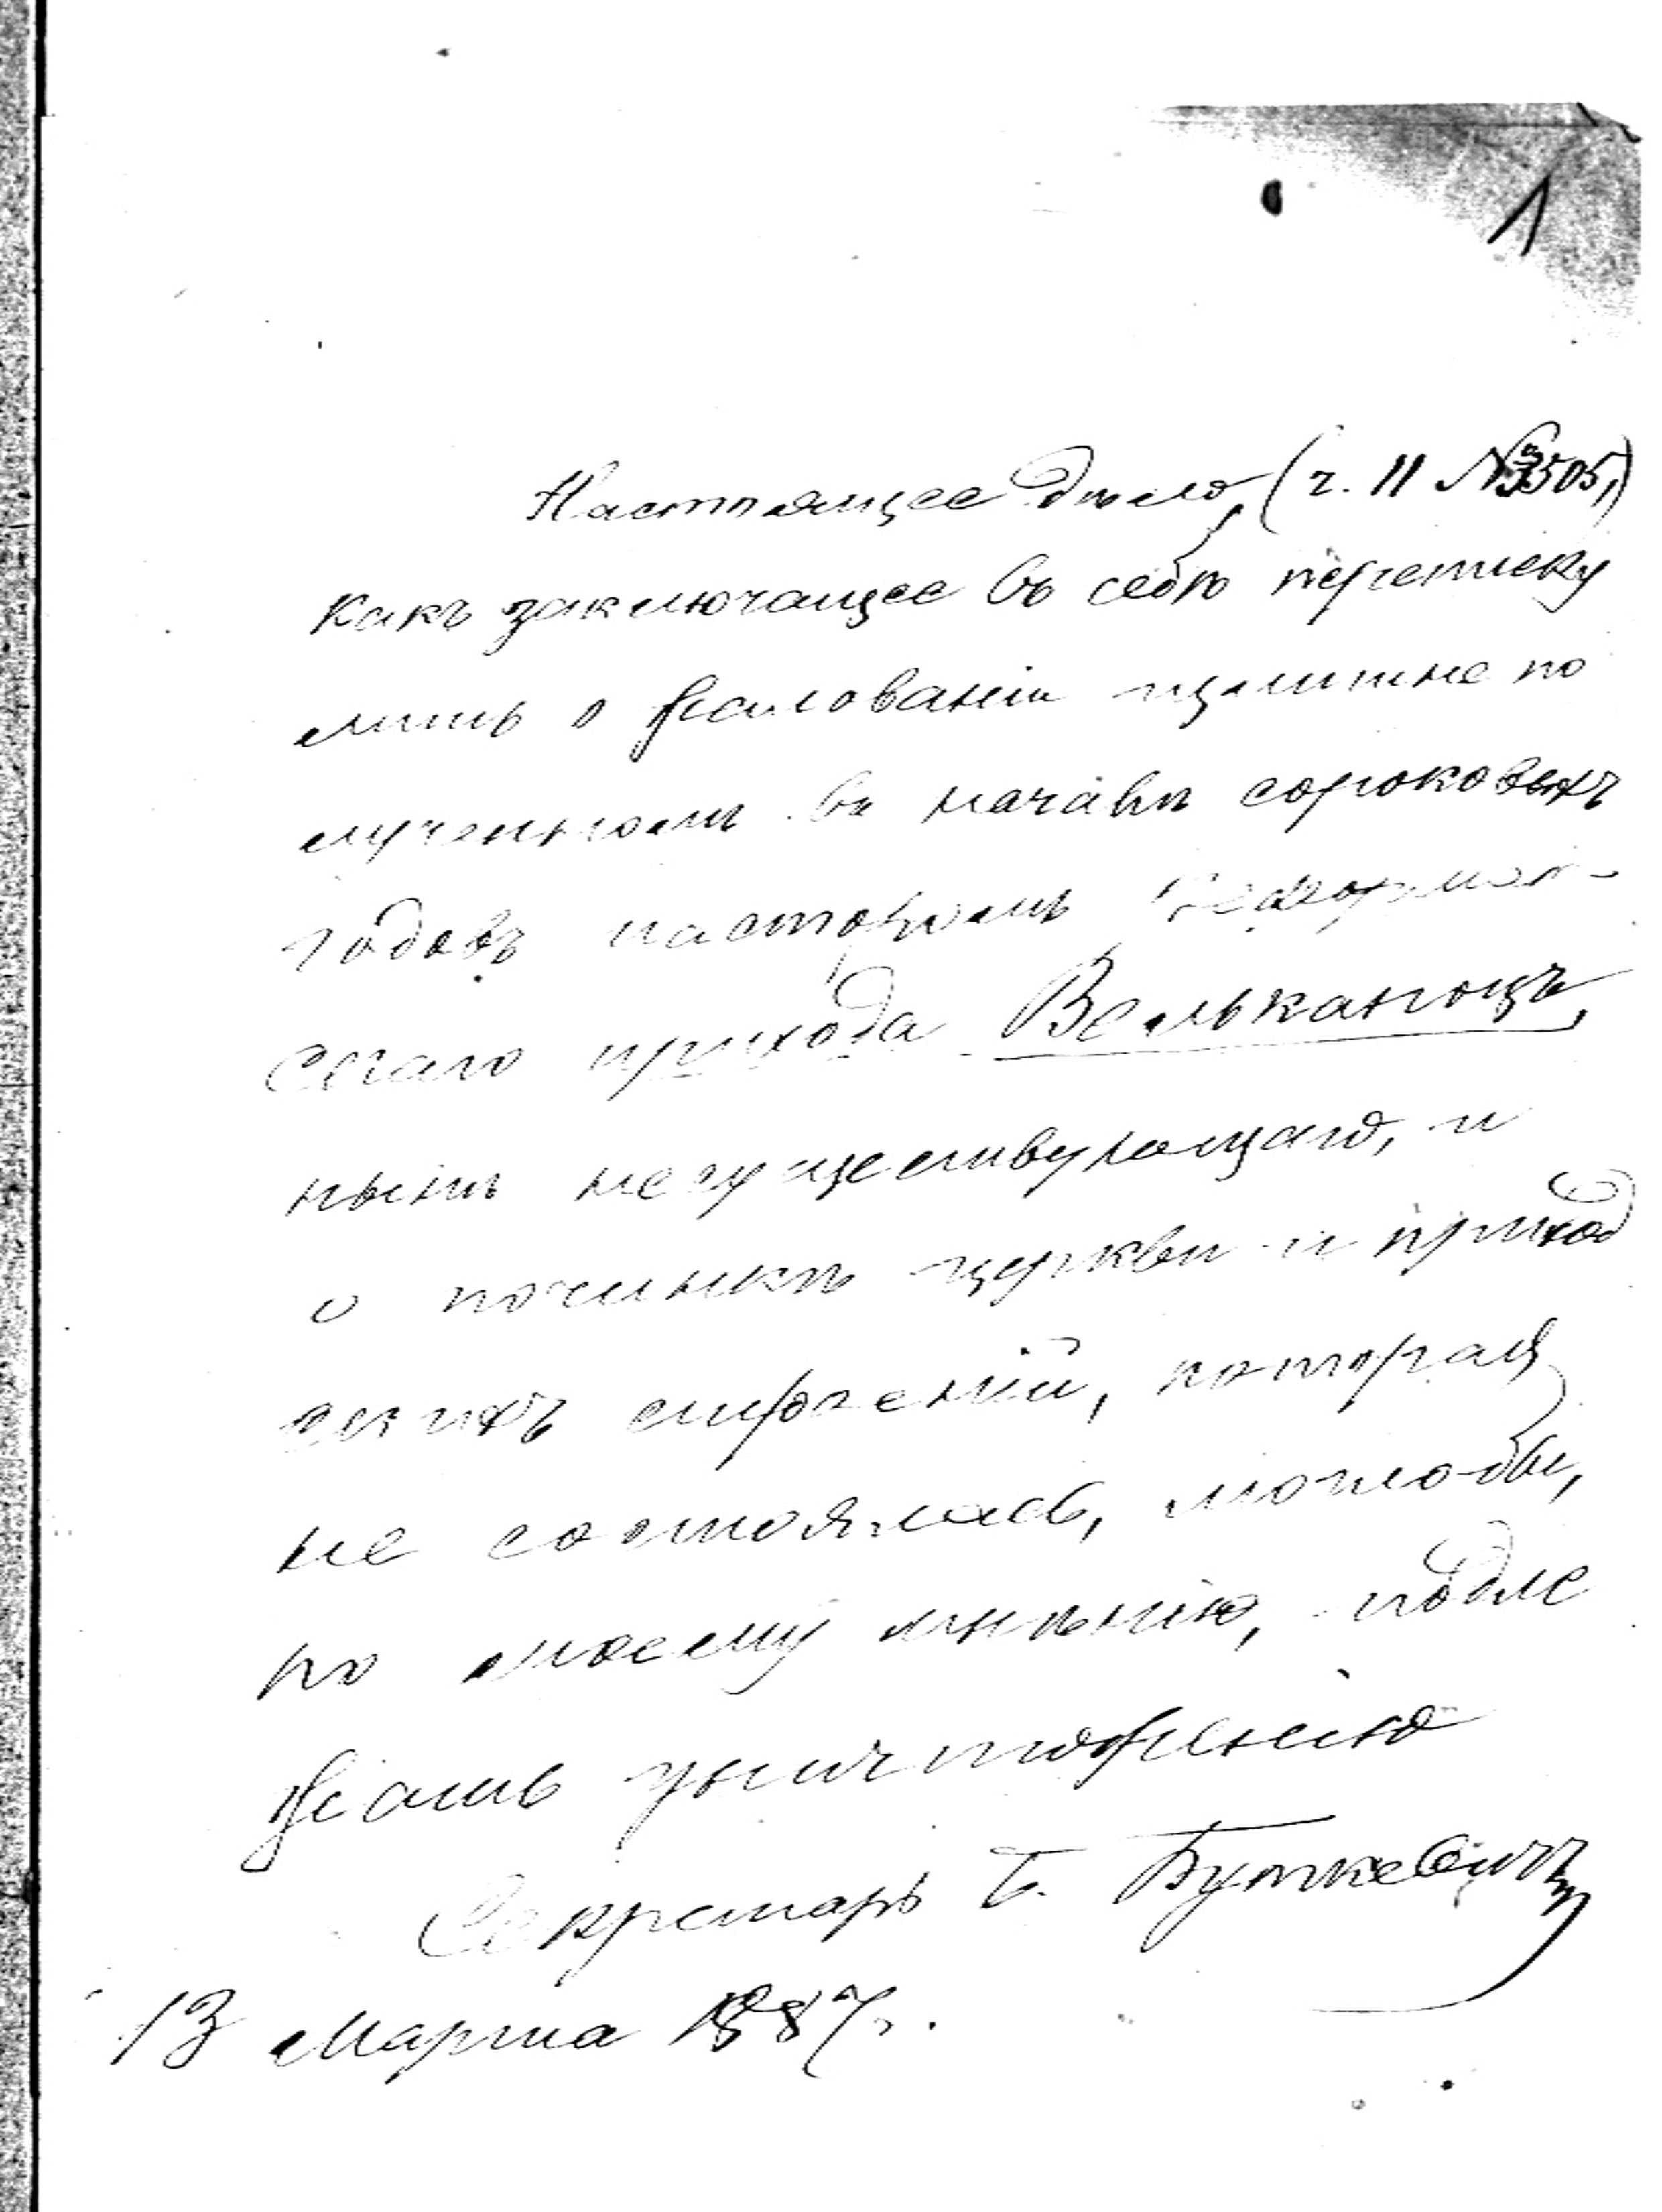 1
Настоящее дѣло, (ч. II № 3505,)
какъ заключащее въ себѣ переписку
лишь о жалованіи
въ началѣ сороковыхъ
годовъ пасторомъ Реформат-
скаго прихода Вельканоцъ,
нынѣ несуществующаго, и
о починкѣ церкви и приход
скихъ строеній, которая
не состоялась, могло-бы,
по моему мнѣнію, подле
жать уничтоженію
Секретарь Б. Буткевичъ
13 Марта 1887 г.